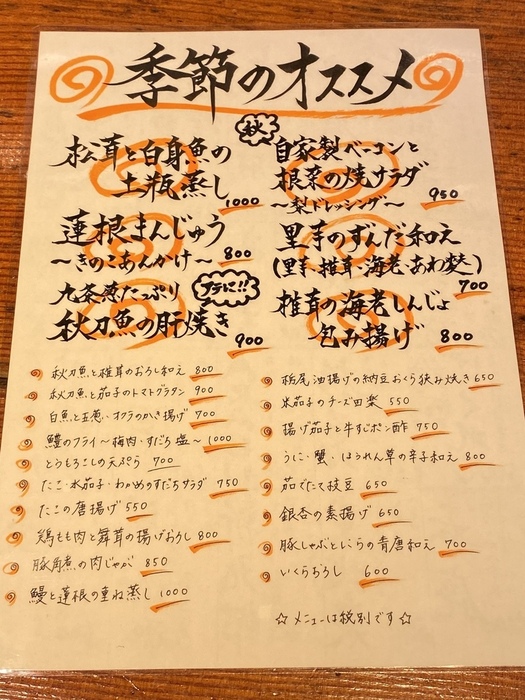 季節のオススメ
秋
松茸と白身魚の
土瓶蒸し 1000
蓮根まんじゅう
〜きのこあんかけ〜 800
九条葱たっぷり
プラチに!!
秋刀魚の肝焼き 900
自家製ベーコンと
根菜の焼サラダ
〜梨ドレッシング〜 950
里芋のずんだ和え
(里芋、椎茸、海老、あわ麩)
700
椎茸の海老しんじょ
包み揚げ 800
秋刀魚と椎茸のおろし和え 800
秋刀魚と茄子のトマトグラタン 900
白魚と玉葱・オクラのかき揚げ 700
鱧のフライ〜梅肉・すだち塩〜 1000
とうもろこしの天ぷら 700
たこ・水茄子・わかめのすだちサラダ 750
たこの唐揚げ 550
鶏もも肉と舞茸の揚げおろし 800
豚角煮の肉じゃが 850
鰻と蓮根の重ね蒸し 1000
栃尾油揚げの納豆おくら挟み焼き 650
米茄子のチーズ田楽 550
揚げ茄子と牛すじポン酢 750
うに・蟹・ほうれん草の辛子和え 800
茹でたて枝豆 650
銀杏の素揚げ 650
豚しゃぶとしらの青唐和え 700
いくらおろし 600
☆メニューは税別です☆